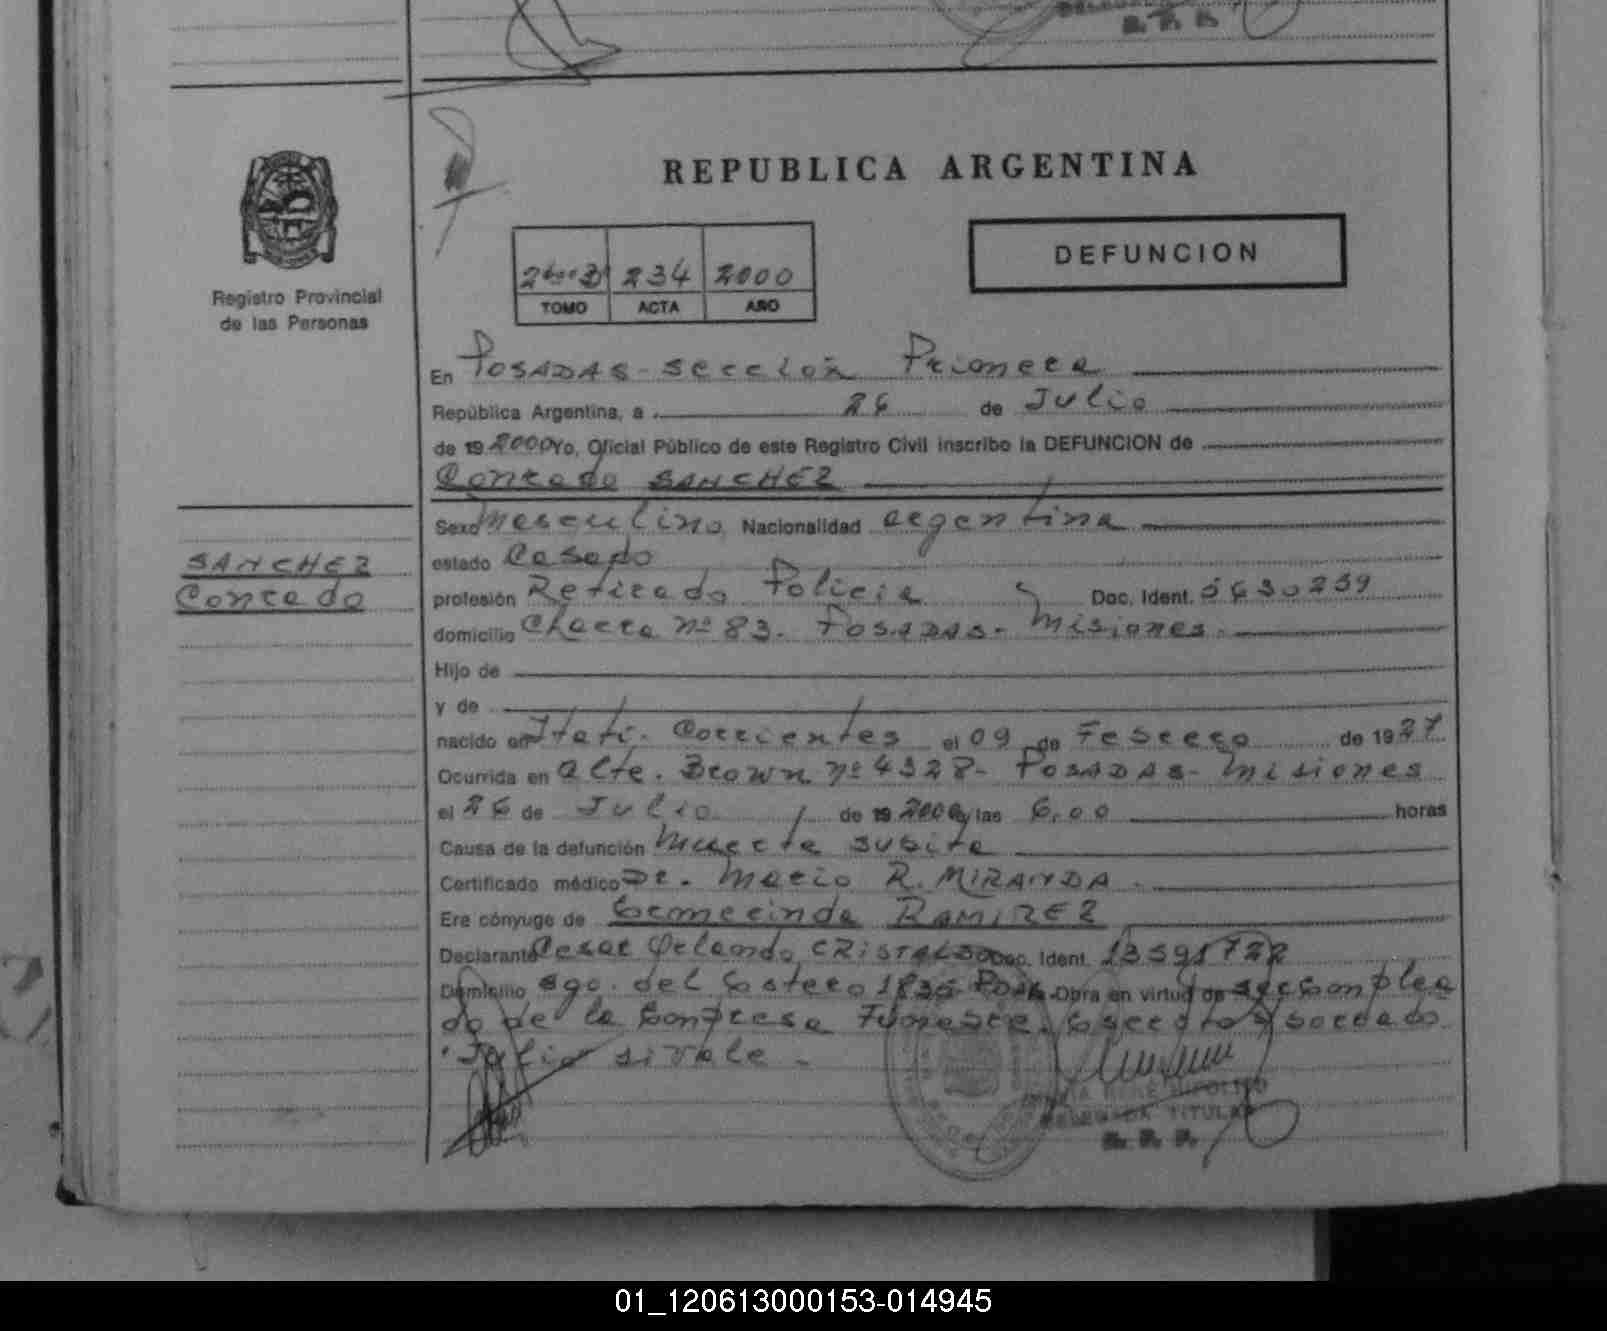 REPUBLICA ARGENTINA
Registro Provincial
de las Personas
234 2000
TOMO ACTA AÑO
DEFUNCION
En POSADAS - sección Primera
República Argentina, a 26 de Julio
de 19 2000 Yo, Oficial Público de este Registro Civil inscribo la DEFUNCION de
Conrado SANCHEZ
SANCHEZ
Conrado
Sexo Masculino Nacionalidad argentina
estado Casado
profesión Retirado Policia Doc. Ident. 5630239
domicilio Chacra nº 83. POSADAS - Misiones.
Hijo de
y de
nacido en Itatí. Corrientes el 09 de Febrero de 19
Ocurrida en Alte. Brown nº 4328 - POSADAS - Misiones
el 26 de Julio de 19 2000 y las 6,00 horas
Causa de la defunción Muerte subita
Certificado médico Dr. Mario R. MIRANDA.
Era cónyuge de Ermerinda RAMIREZ
Declarante Cesar Orlando CRISTALDO Doc. Ident. 13591722
Domicilio del 1835 Obra en virtud de ser Emplea
do de la Empresa Funebre.
TITULAR
01_120613000153-014945